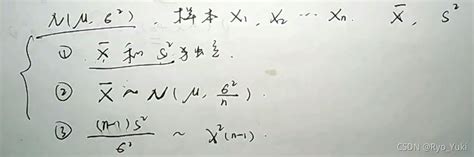 N(μ, σ²), 样本 X₁, X₂ … Xₙ. X̄, S²
① X̄ 和 S² 独立.
② X̄ ~ N(μ, σ²/n).
③ (n-1)S²/σ² ~ χ²(n-1).
CSDN @Ryo_Yuki